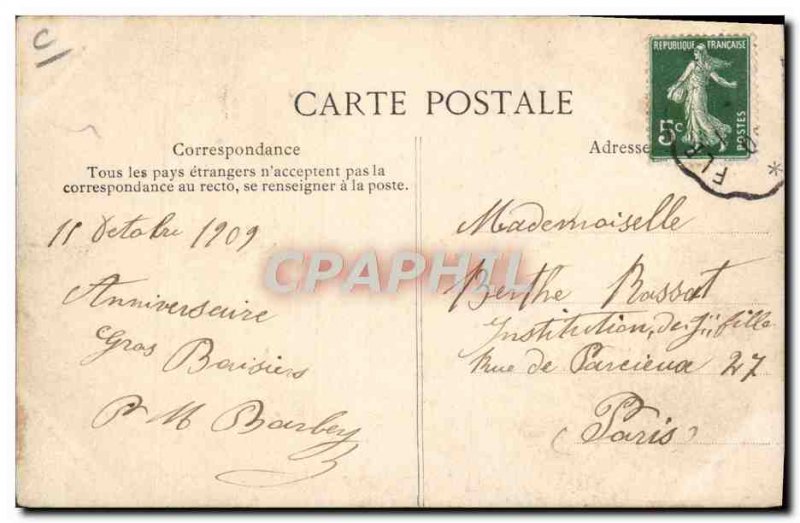 C/
RÉPUBLIQUE FRANÇAISE
5c
POSTES
CARTE POSTALE
Correspondance
Tous les pays étrangers n'acceptent pas la
correspondance au recto, se renseigner à la poste.
Adresse
FLR
11 Octobre 1909
Anniversaire
Gros Baisiers
P M Barbey
Mademoiselle
Berthe Rossat
Institution, de fille
Rue de Parcieux 27
(Paris)
CPAPHIL